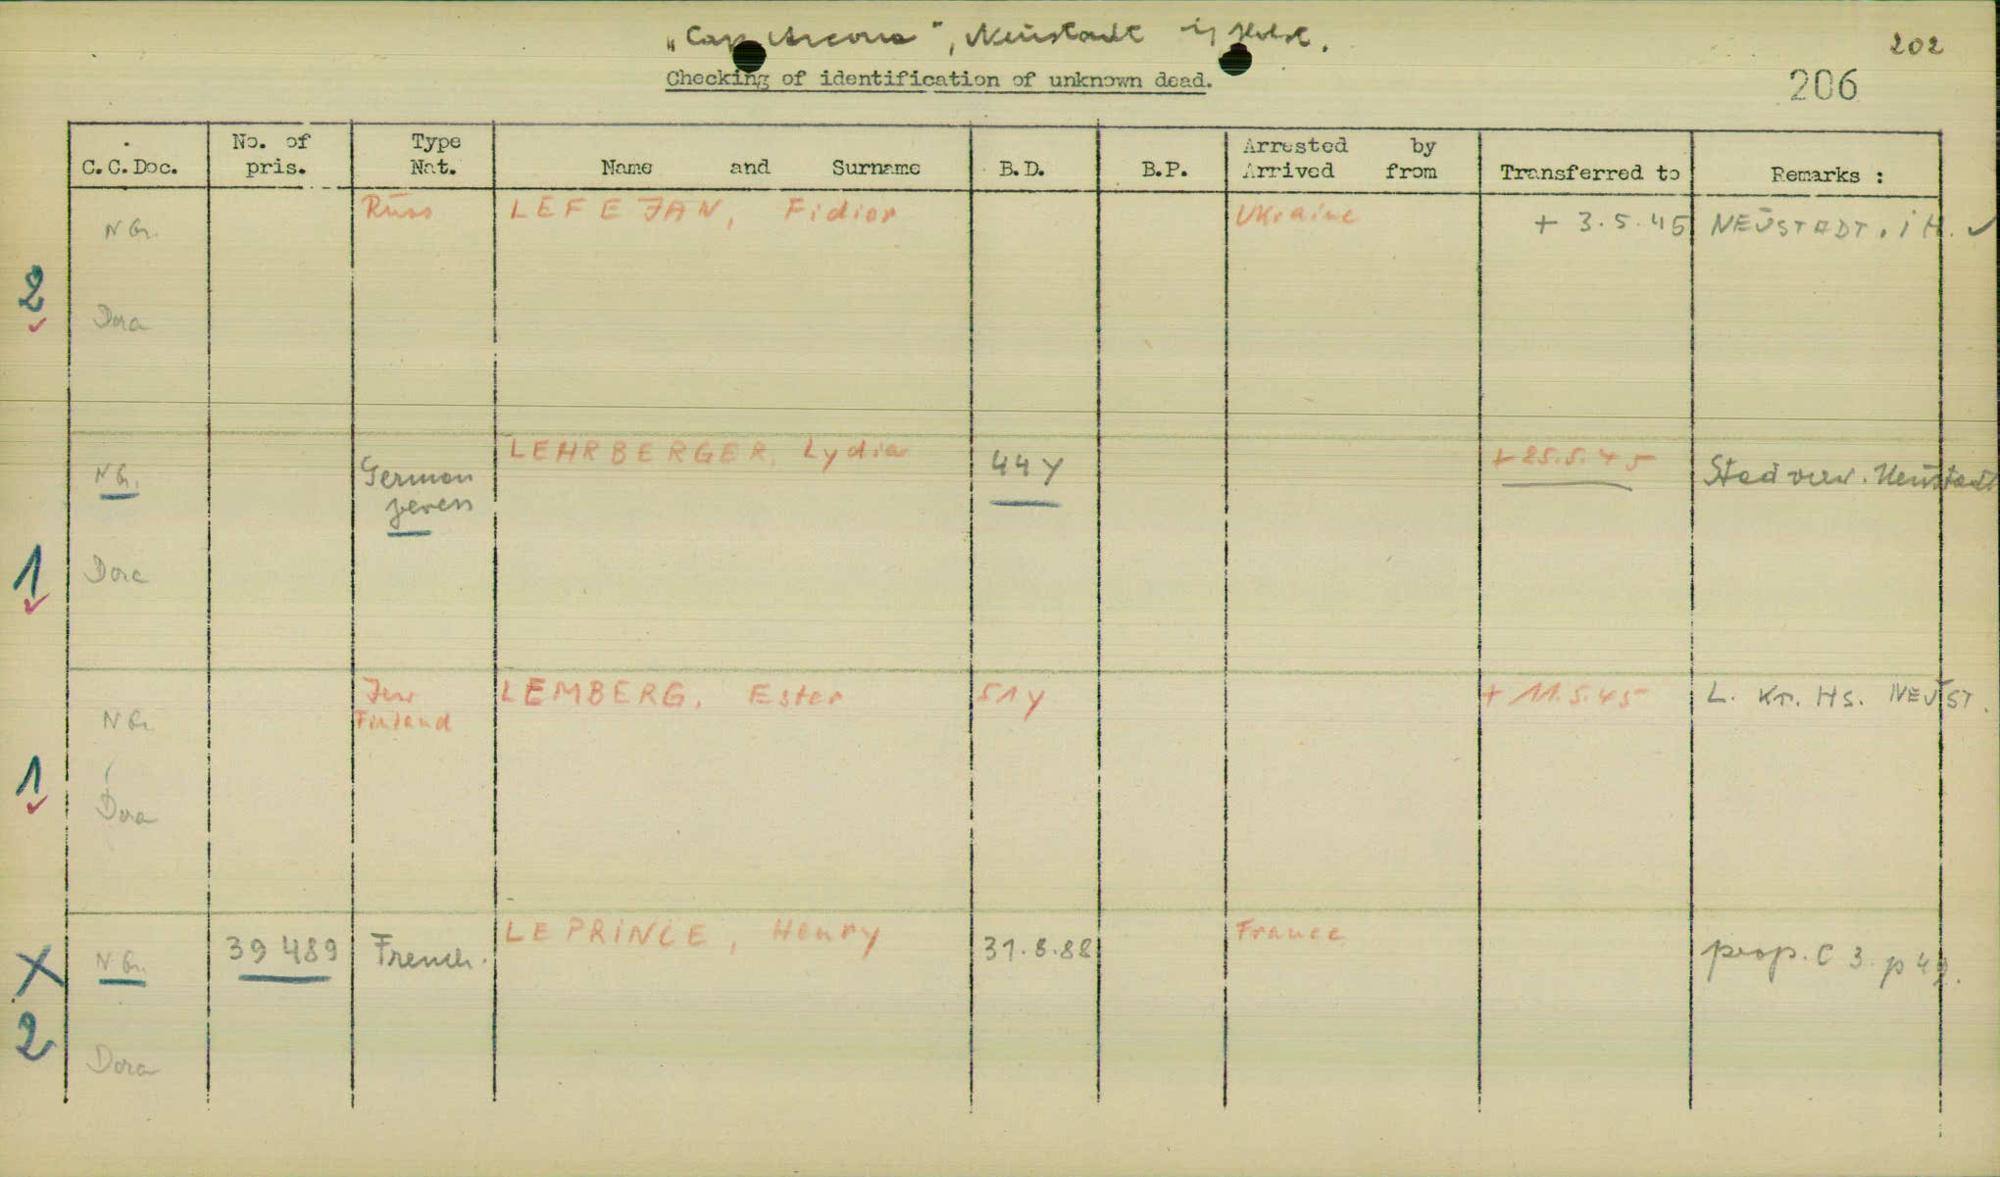 „Cap Arcona", Neustadt i/ Holst.
202
Checking of identification of unknown dead.
206
C.C.Doc.
No. of pris.
Type Nat.
Name and Surname
B.D.
B.P.
Arrested by
Arrived from
Transferred to
Remarks :
2
NGr.
Dora
Russ
LEFEJAN, Fidior
Ukraine
+ 3.5.45
NEUSTADT. i H.
1
NGr.
Dora
German
LEHRBERGER, Lydia
44 y
+ 25.5.45
Neustadt
1
NGr
Dora
Jew
Finland
LEMBERG, Ester
51 y
+ 11.5.45
L. Kr. Hs. NEUST.
X
2
NGr.
Dora
39 489
French.
LEPRINCE, Henry
31.8.88
France
prop. C 3. p 49.